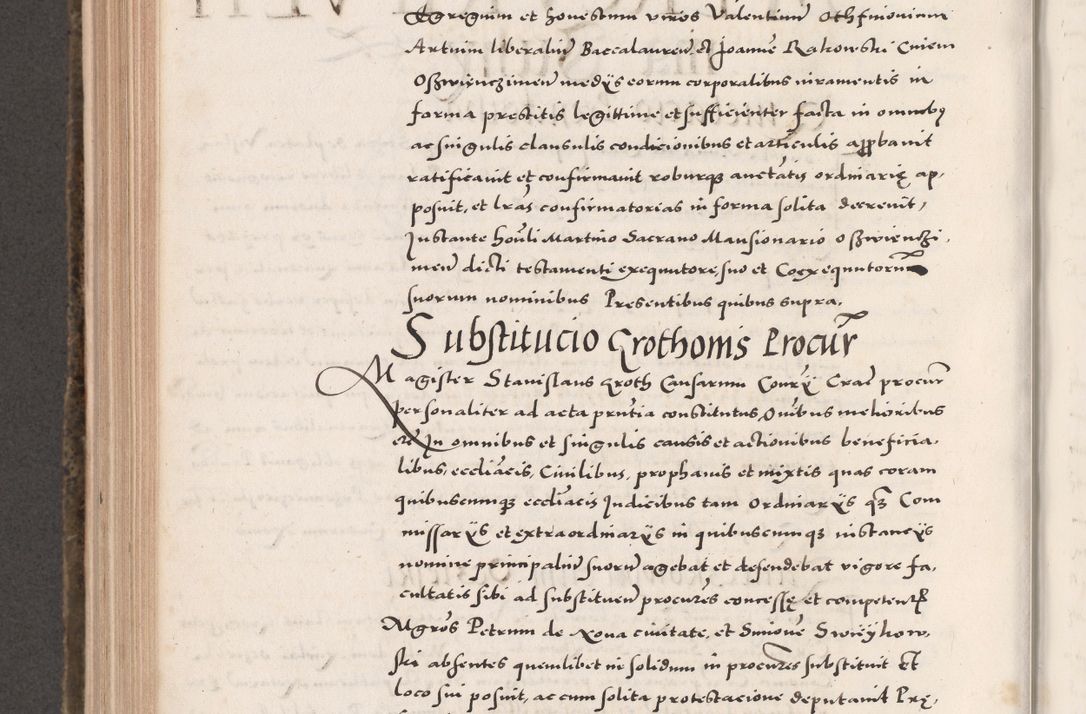 Egregium et honestum viros Valentinum Othfinovium
Artium liberaliũ Baccalaureũ et Joannẽ Rakowski Civem
Oszwienczimeñ medijs eorum corporalibus iuramentis in
forma prestitis legittime et sufficienter facta in omnibꝫ
ac singulis clausulis condicionibus et articulis approbavit
ratificavit et confirmavit roburqꝫ auctãtis ordinarię ap,
posuit, et lrãs confirmatorias in forma solita decrevit,
Instante hoñli Martino Sacrano Mansionario Oszwienczi,
meñ dicti testamenti exequutore, suo et Coexequutorum
suorum nominibus Presentibus quibus supra,
Substitucio Grothonis Procur̃
Magister Stanislaus Groth Causarum Consrÿ Craeñ procur̃
personaliter ad acta prñtia constitutus, Oñibus melioribus
etc̃ In omnibus et singulis causis et actionibus beneficia,
libus, ecclĩacis, Civilibus, prophanis et mixtis quas coram
quibuscumqꝫ ecclĩacis Judicibus tam Ordinarijs qꝫ Com
missarijs et extraordinarijs in quibuscumqꝫ instancijs
nomine principaliũ suorũ agebat et defendebat vigore fa,
cultatis sibi ad substitueñ procurẽs concessę et competenẽ
Mgrõs Petrum de Nova civitate, et Simonẽ Swieÿkow,
ski absentes quemlibet in solidum in procurẽs substituit Et
loco sui posuit, ac cum solita protestacione deputavit Prę,